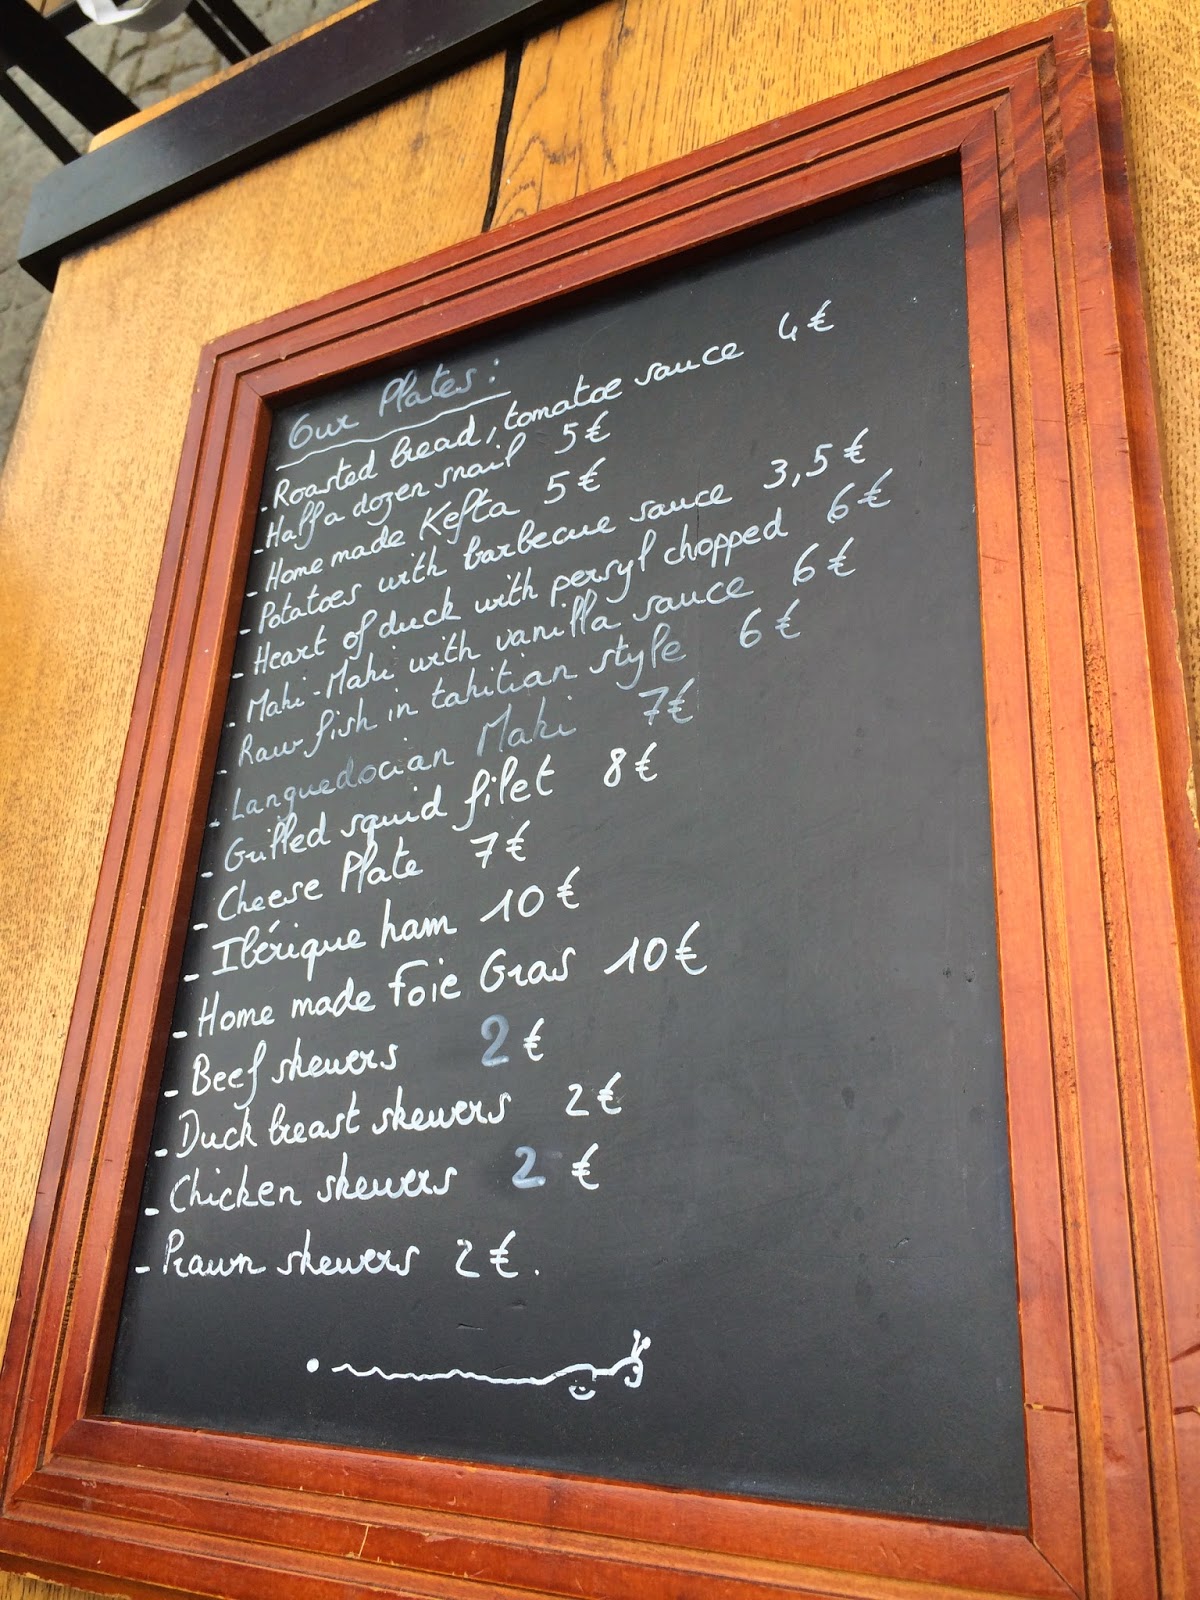 Our Plates:
- Roasted bread, tomatoe sauce 4€
- Half a dozen snail 5€
- Home made Kefta 5€
- Potatoes with barbecue sauce 3,5€
- Heart of duck with persyl chopped 6€
- Mahi-Mahi with vanilla sauce 6€
- Raw fish in tahitian style 6€
- Languedocian Maki 7€
- Grilled squid filet 8€
- Cheese Plate 7€
- Ibérique ham 10€
- Home made Foie Gras 10€
- Beef skewers 2€
- Duck breast skewers 2€
- Chicken skewers 2€
- Prawn skewers 2€.